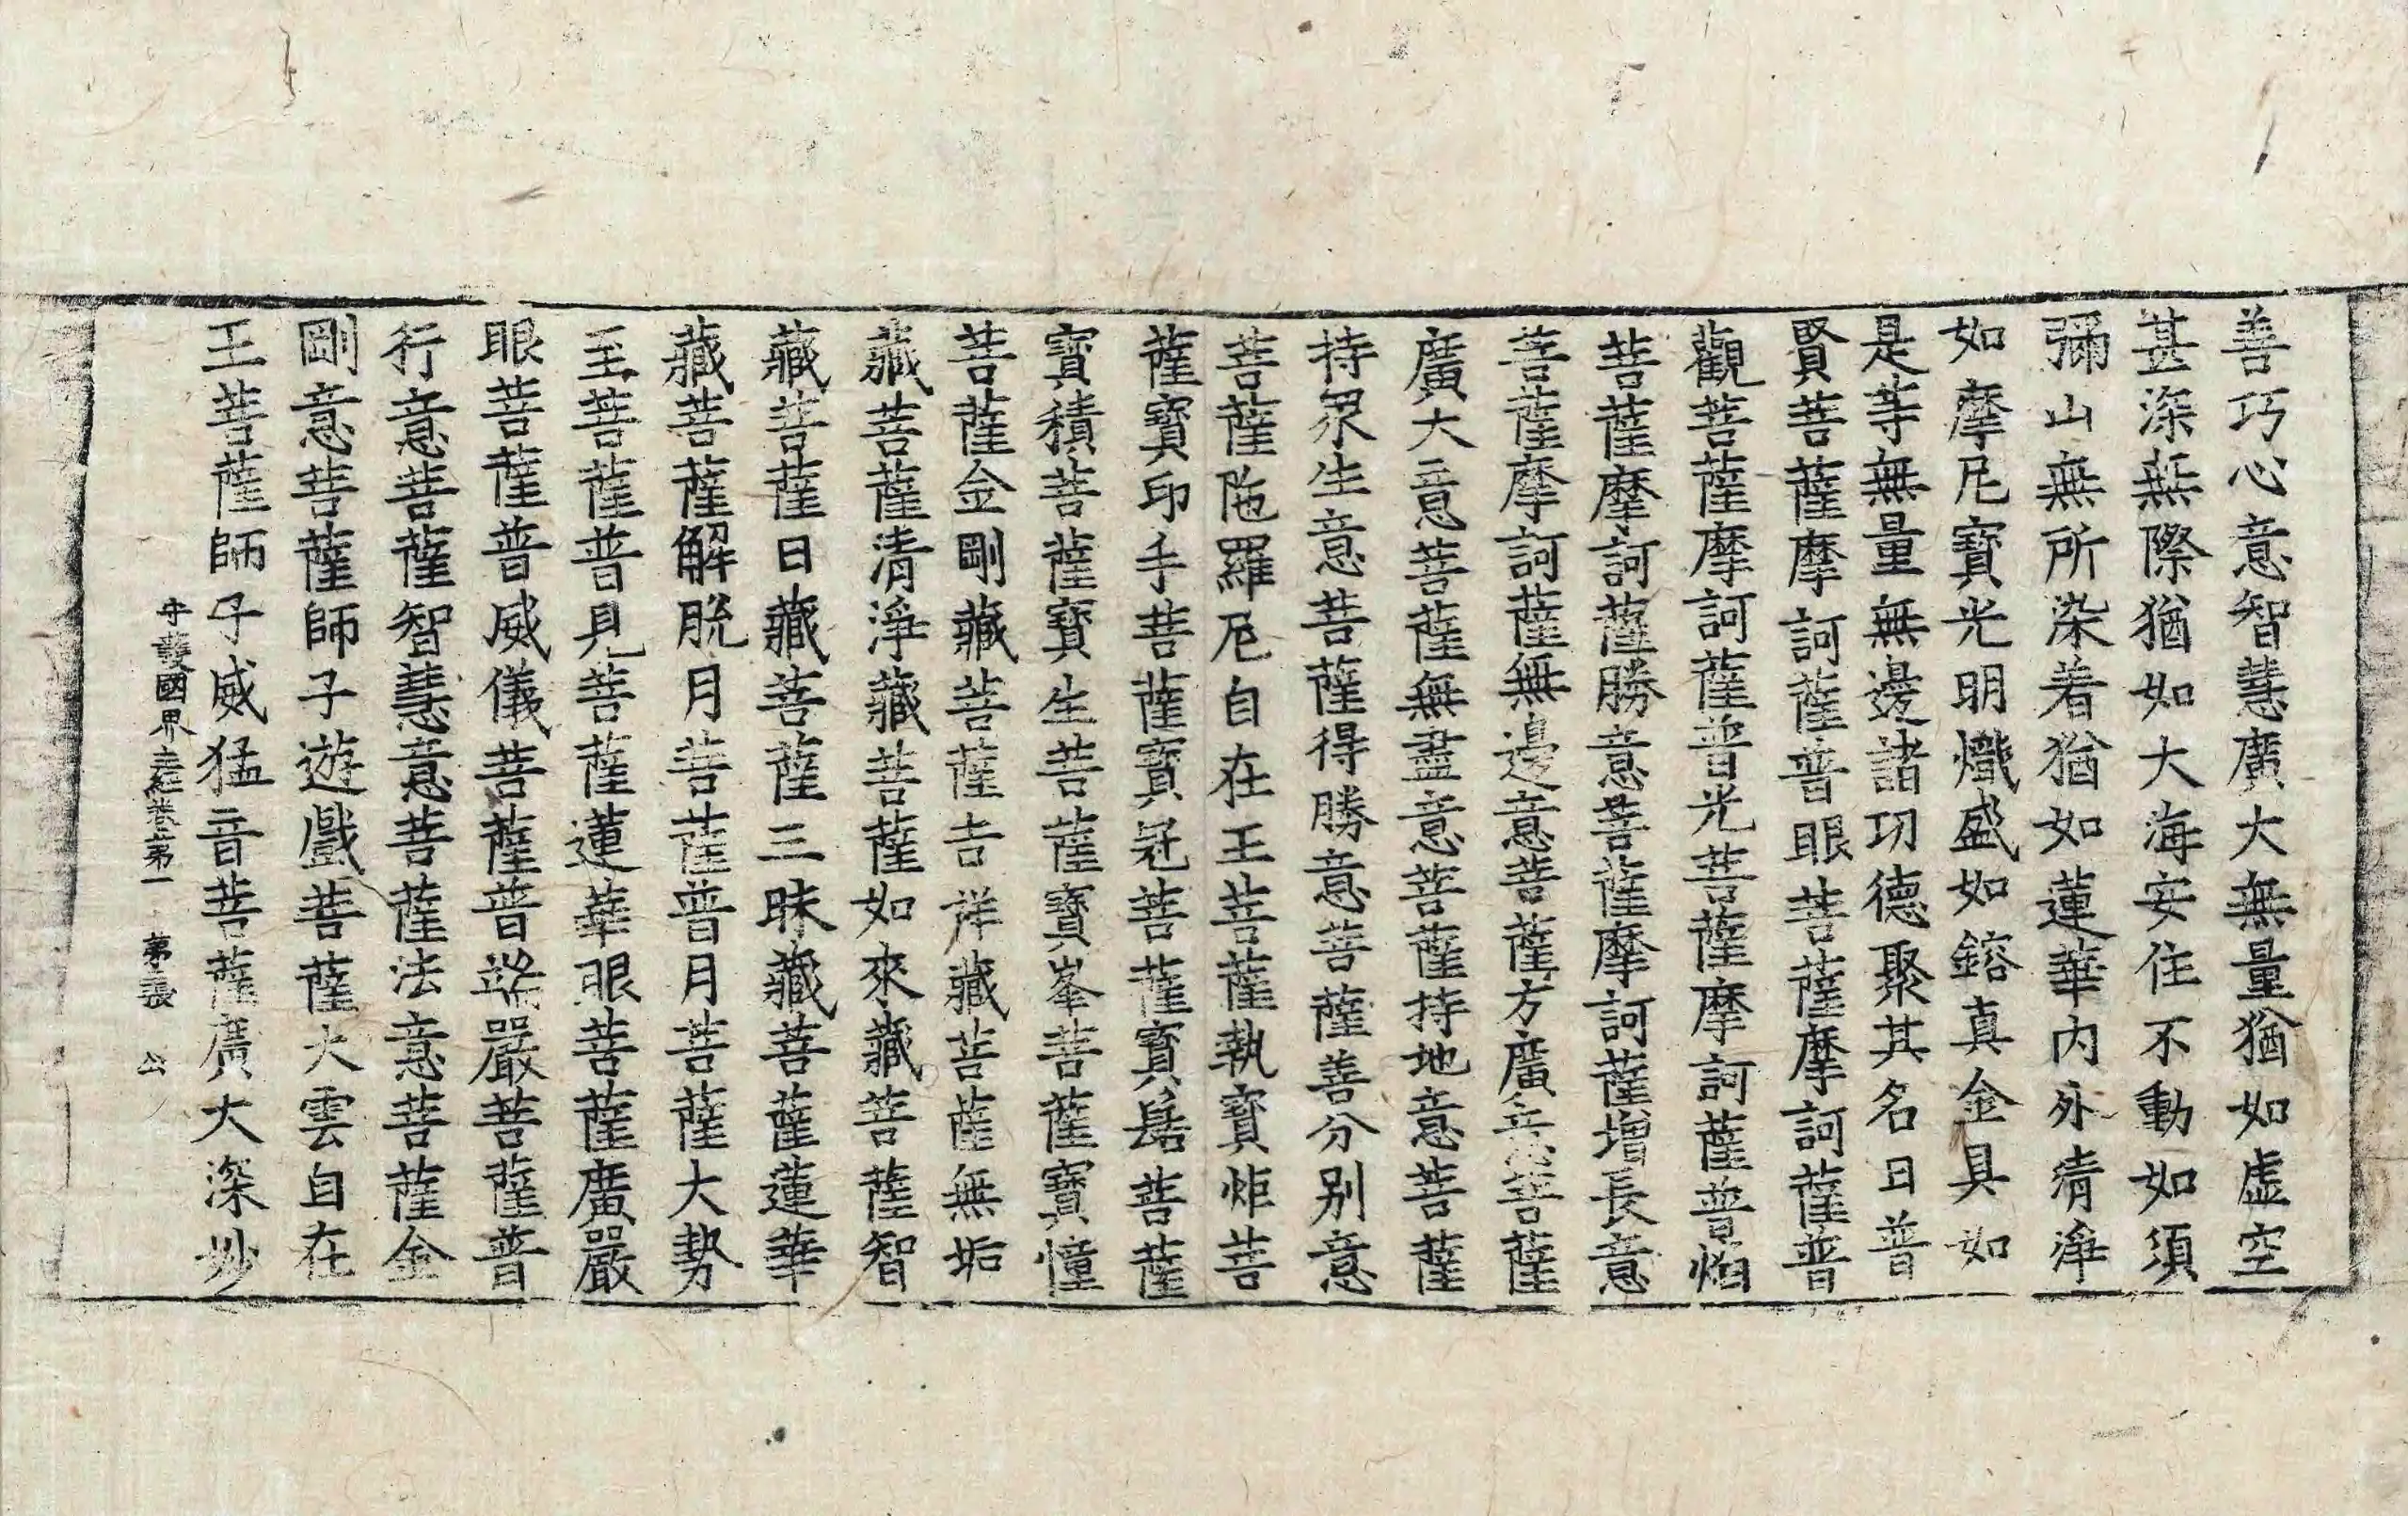 善巧心意智慧廣大無量猶如虛空
甚深無際猶如大海安住不動如須
彌山無所染着猶如蓮華內外清淨
如摩尼寶光明熾盛如鎔真金具如
是等無量無邊諸功德聚其名曰普
賢菩薩摩訶薩普眼菩薩摩訶薩普
觀菩薩摩訶薩普光菩薩摩訶薩普焰
菩薩摩訶薩勝意菩薩摩訶薩增長意
菩薩摩訶薩無邊意菩薩方廣意菩薩
廣大意菩薩無盡意菩薩持地意菩薩
持眾生意菩薩得勝意菩薩善分別意
菩薩陁羅尼自在王菩薩執寶炬菩
薩寶印手菩薩寶冠菩薩寶髻菩薩
寶積菩薩寶生菩薩寶峯菩薩寶幢
菩薩金剛藏菩薩吉祥藏菩薩無垢
藏菩薩清淨藏菩薩如來藏菩薩智
藏菩薩日藏菩薩三昧藏菩薩蓮華
藏菩薩解脫月菩薩普月菩薩大勢
至菩薩普見菩薩蓮華眼菩薩廣嚴
眼菩薩普威儀菩薩普端嚴菩薩普
行意菩薩智慧意菩薩法意菩薩金
剛意菩薩師子遊戲菩薩大雲自在
王菩薩師子威猛音菩薩廣大深妙
守護國界主經卷第一 第三張 公